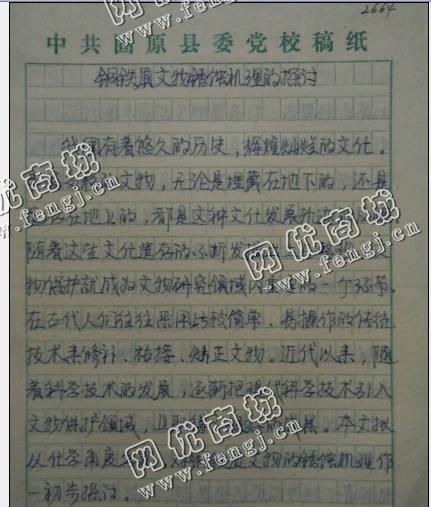 2664
中共固原县委党校稿纸
钢铁质文物锈蚀机理的探讨
我国有着悠久的历史，辉煌灿烂的文化，
文物，无论是埋藏在地下的，还是
在地上的，都是这种文化发展
随着这些文化遗存的不断发
物保护就成为文物研究领域内 的一个环节。
在古代人们往往采用比较简单、易操作的传统
技术来修补、粘接、矫正文物。近代以来，随
着科学技术的发展，逐渐把现代科学技术引入
文物保护领域， 成果。本文拟
从化学角度 文物的锈蚀机理作
一初步探讨。
网优商城
www.fengj.cn
网优商城
www.fengj.cn
网优商城
www.fengj.cn
网优商城
www.fengj.cn